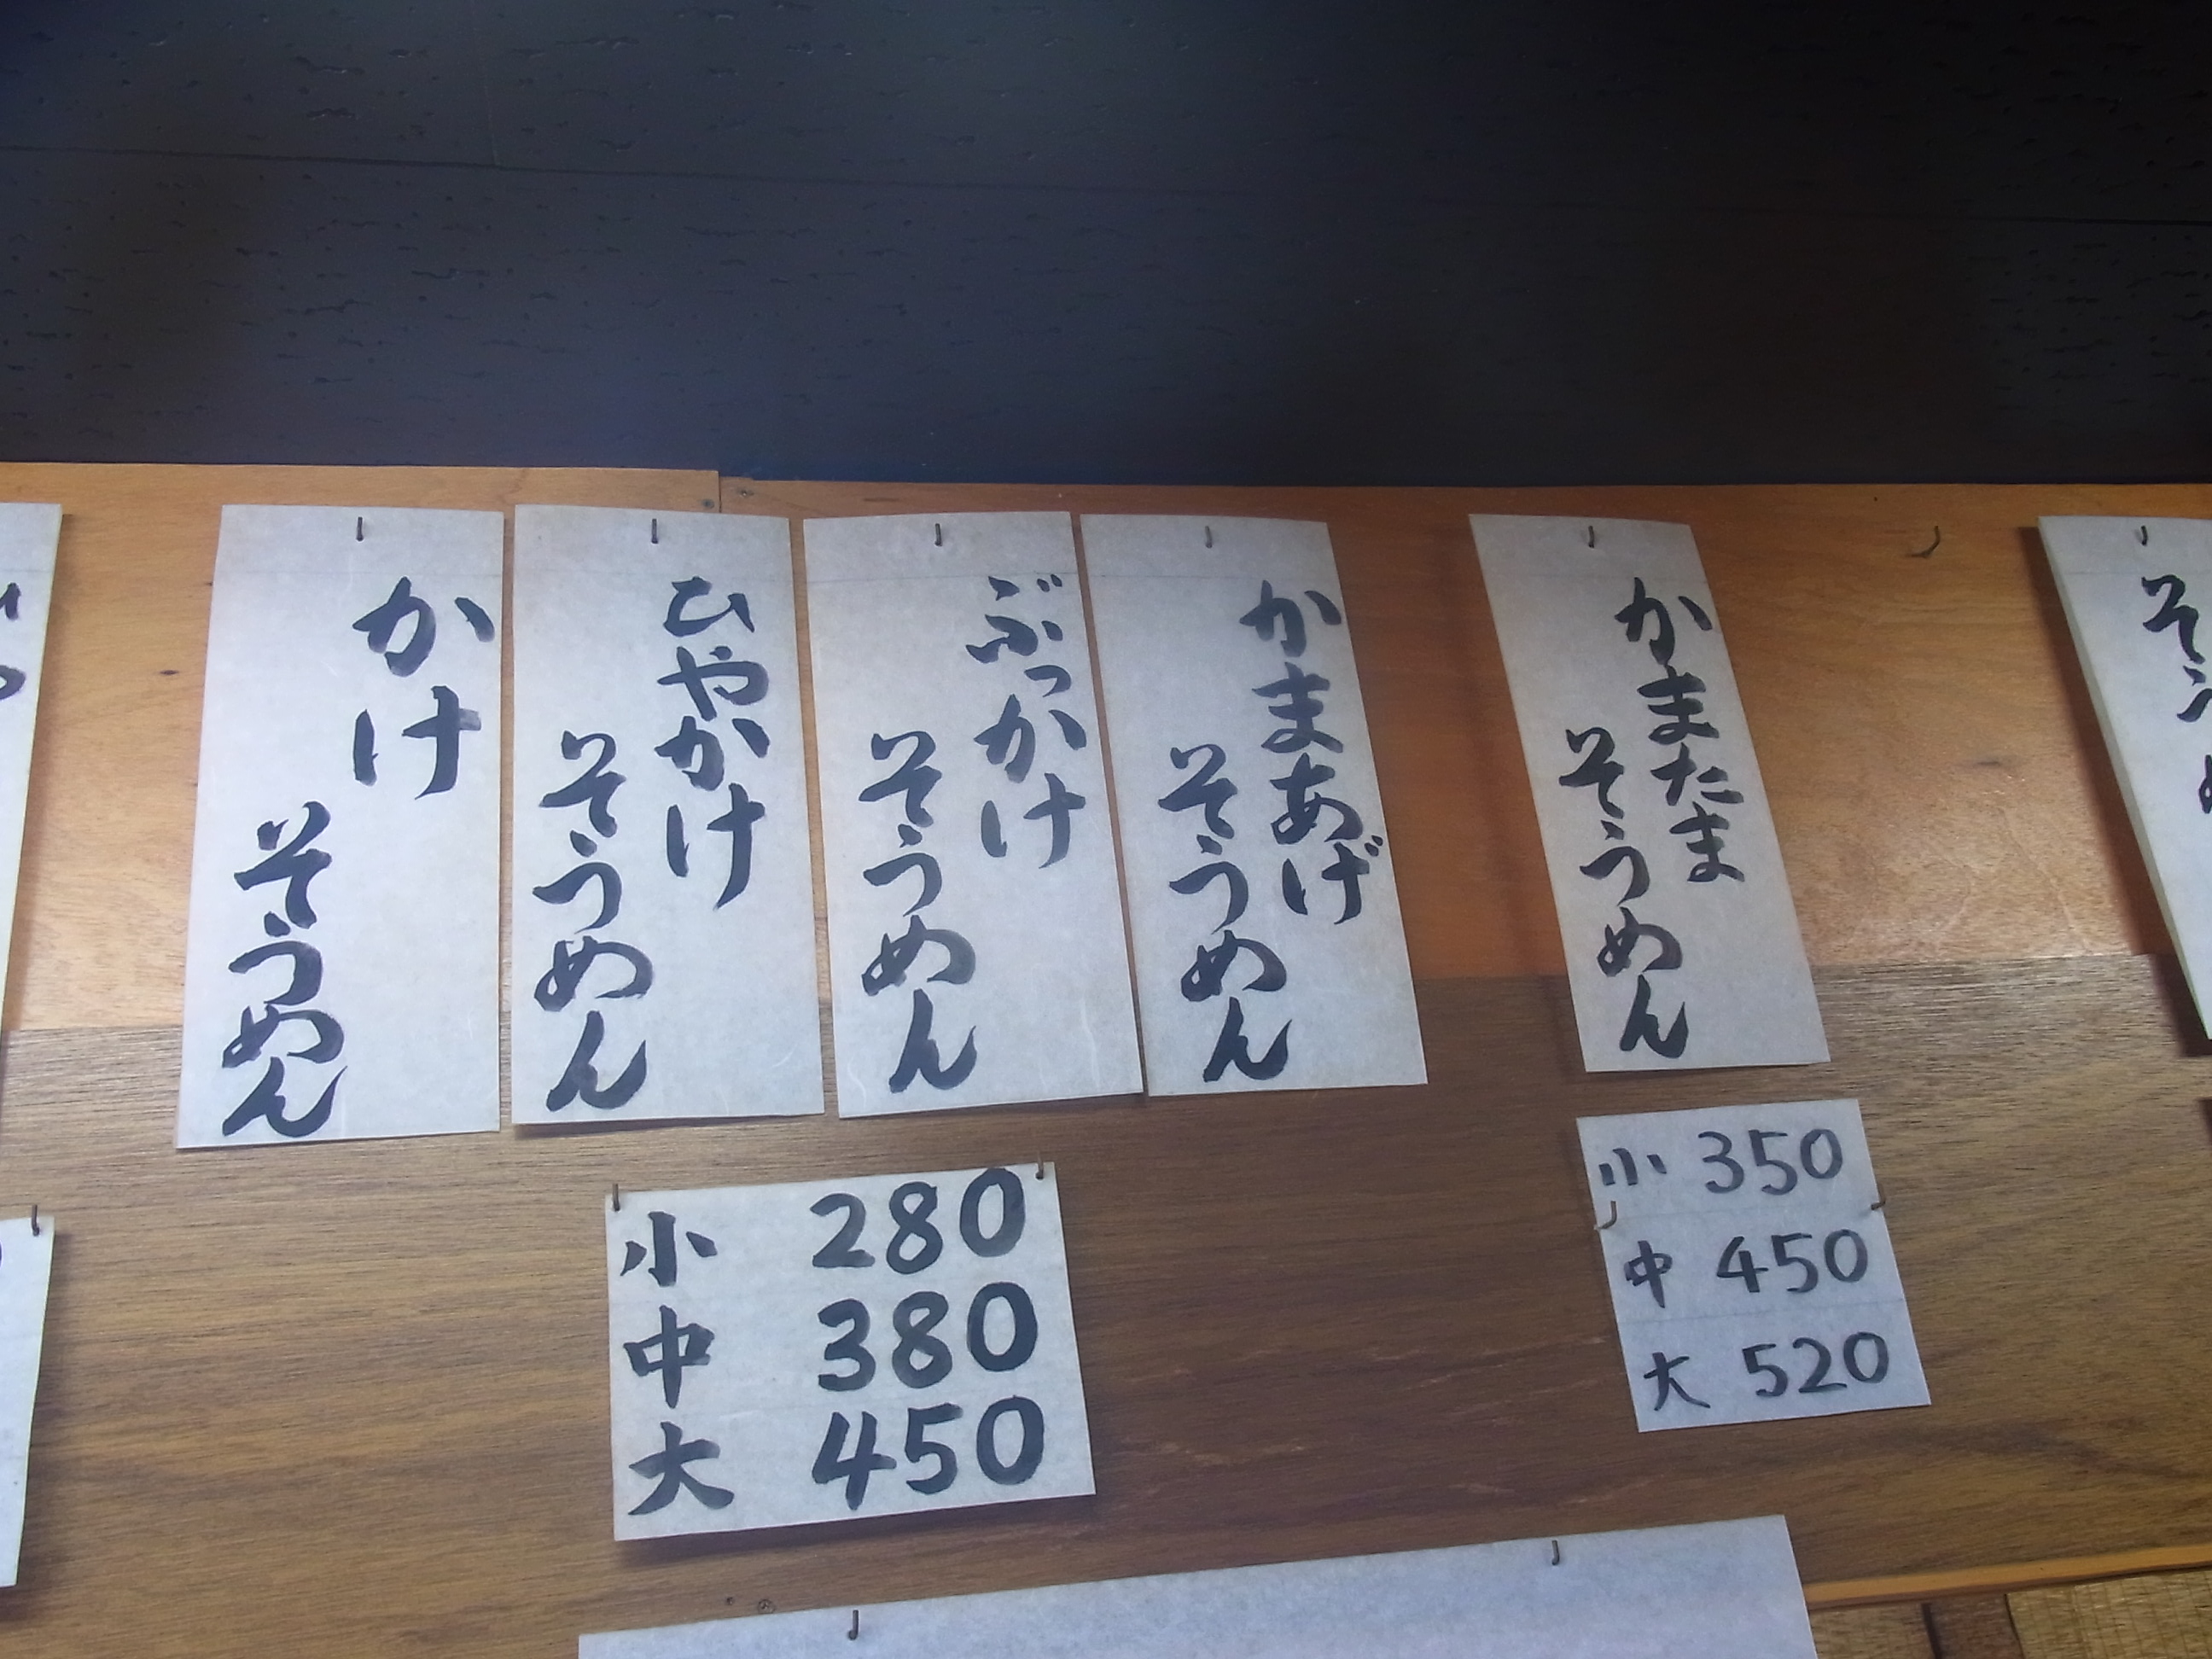 かけ
そうめん
ひやかけ
そうめん
ぶっかけ
そうめん
かまあげ
そうめん
かまたま
そうめん
小 280
中 380
大 450
小 350
中 450
大 520